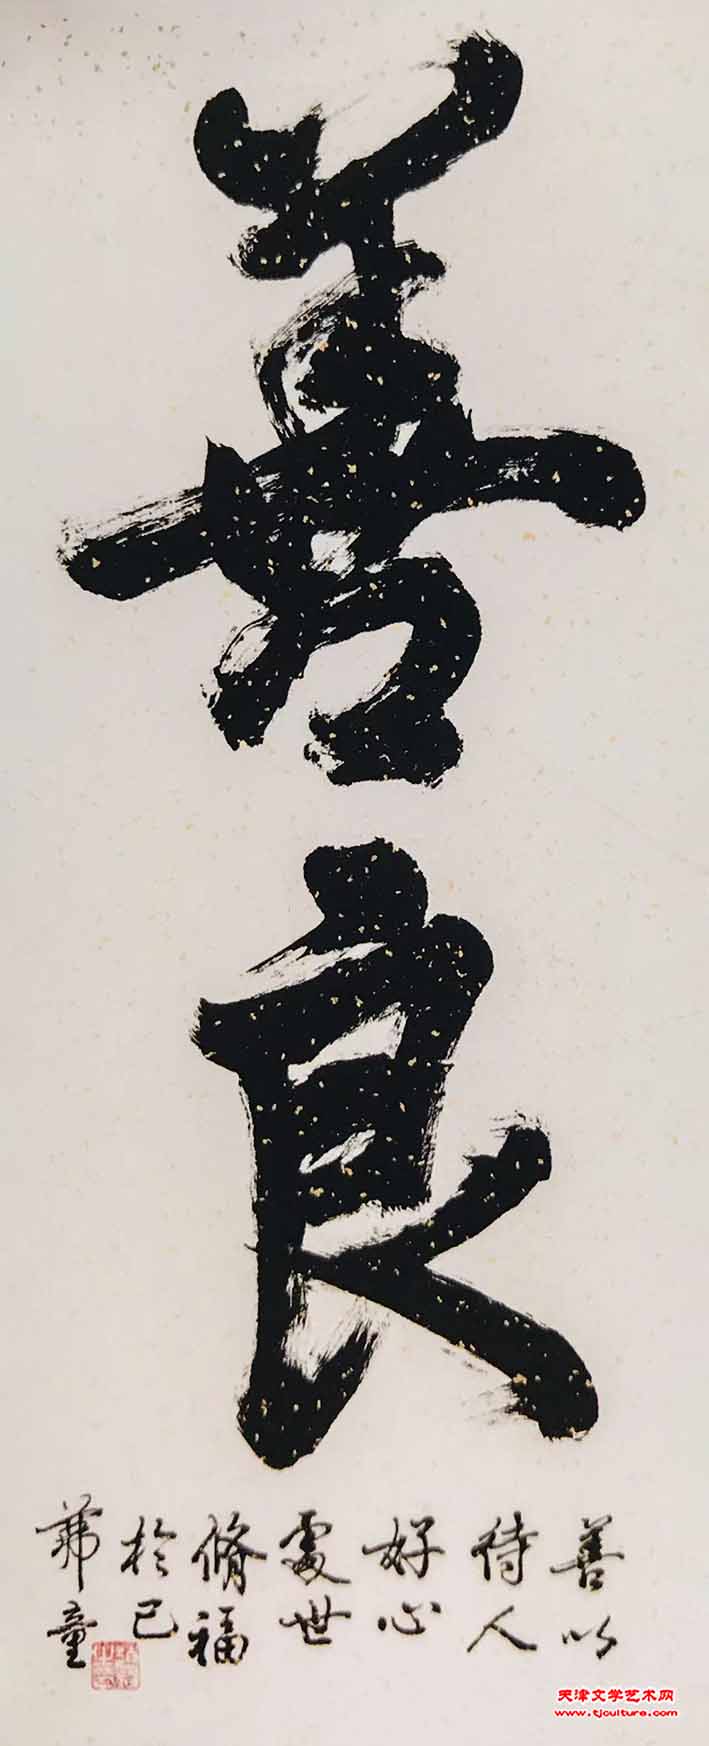 善良
善以
待人
好心
處世
脩福
於己
茀童
天津文学艺术网
www.tjculture.com